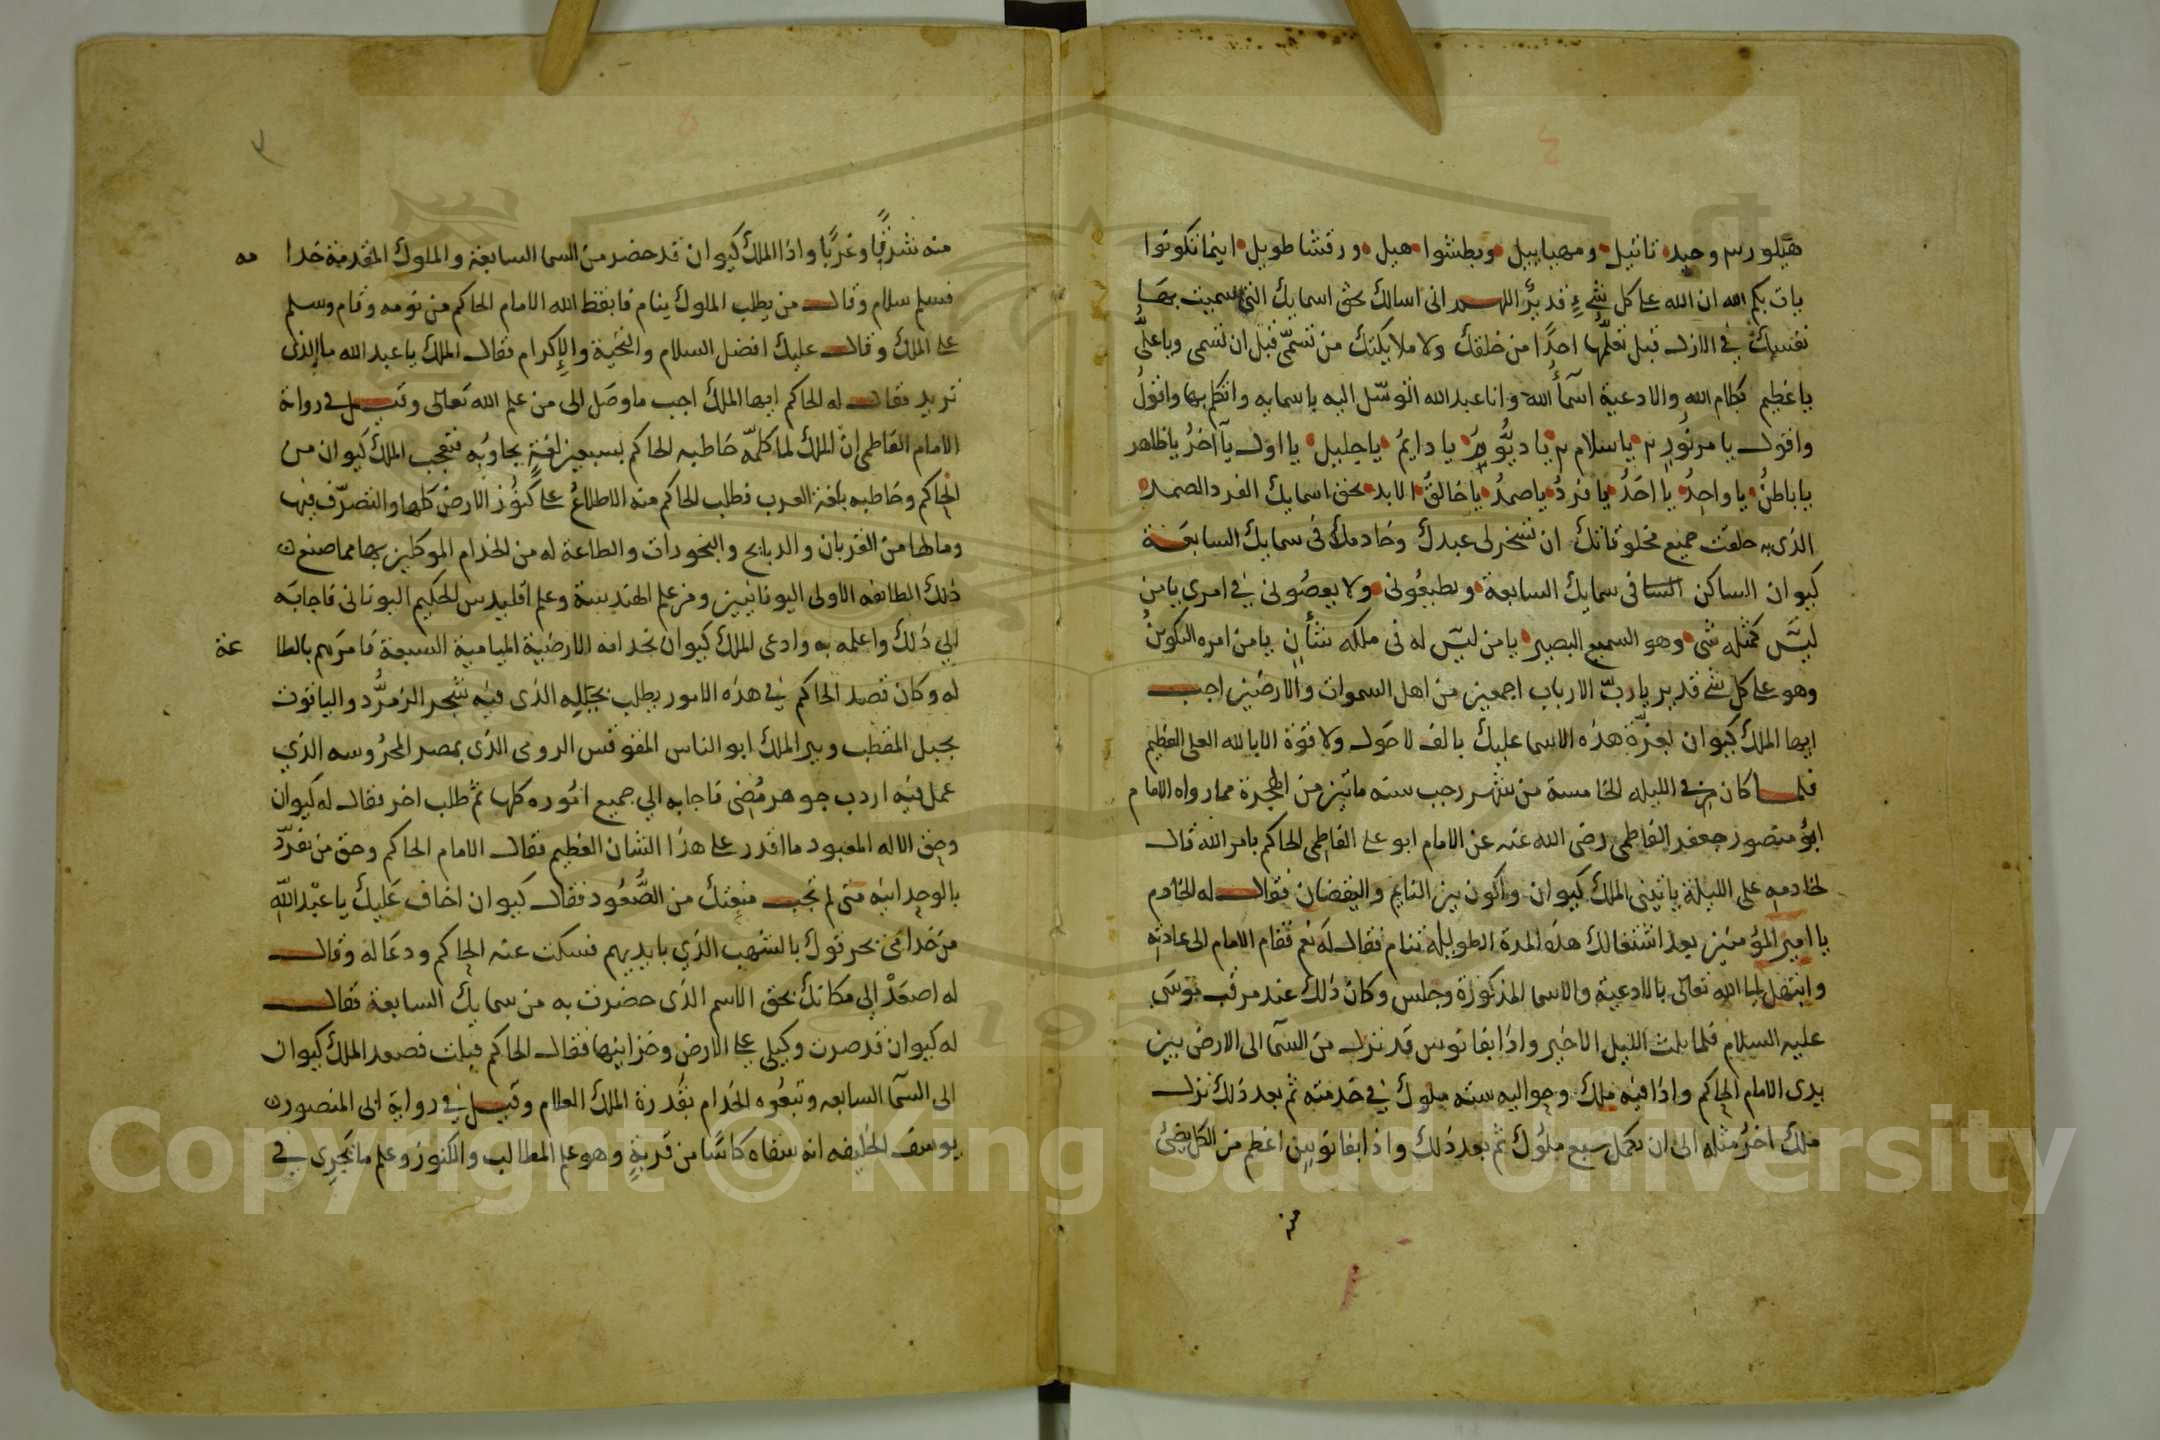 هيلورس وحيد ثانيل ومهيابيل وبطشوا هيل ورقشا طويل اينما تكونوا
يات بكم الله ان الله على كل شيء قدير اللهم اني اسالك بحق اسمايك التي سميت بها
نفسك في الازل قبل تعلمها احدا من خلقك ولا ملايكتك من تسمى قبل ان تسمى وباعلى
يا عظيم بكلام الله والادعية اسماء الله وانا عبد الله اتوسل اليه باسمايه واتكلم بها واقول
واقول يا مر نور يا سلام يا ديوم يا دايم يا جليل يا اول يا آخر يا ظاهر
يا باطن يا واحد يا احد يا فرد يا صمد يا خالق الابد بحق اسمايك الفرد الصمد
الذي به خلقت جميع مخلوقاتك ان تسخر لي عبدك وخادمك في سمايك السابعة
كيوان الساكن في سمايك السابعة ويطيعوني ولا يعصوني في امري يا من
ليس كمثله شي وهو السميع البصير يا من ليس له في ملكه شأن يا من امره التكوين
وهو على كل شي قدير يا رب الارباب اجمعين من اهل السموات والارضين اجب
ايها الملك كيوان بعزة هذه الاسما عليك بالف لا حول ولا قوة الا بالله العلي العظيم
فلما كان في الليله الخامسة من شهر رجب سنه مائتين من الهجرة مما رواه الامام
ابو منصور جعفر الفاطمي رضى الله عنه عن الامام ابو على الفاطمي الحاكم بامر الله قال
لخادمه على الليلة ياتيني الملك كيوان واكون بين النايم واليقضان فقال له الخادم
يا امير المؤمنين بعد اشتغالك هذه المدة الطويلة تنام فقال له نعم فقام الامام الى عادته
وابتهل الى الله تعالى بالادعية والاسما المذكورة وجلس وكان ذلك عند مرقب موسى
عليه السلام فلما ثلث الليل الاخير واذا بفانوس قد نزل من السما الى الارض بين
يدي الامام الحاكم واذا فيه ملك وحواليه سته ملوك في خدمته ثم بعد ذلك نزل
ملك اخر مثله الى ان تكمل سبع ملوك ثم بعد ذلك واذا بفانوس اعظم من الكل يضئ
منه
منه شرقا وغربا واذا الملك كيوان قد حضر من السما السابعة والملوك المتقدمة خدا مه
فسلم سلام وقال من يطلب الملوك ينام فايقظ الله الامام الحاكم من نومه وقام وسلم
على الملك وقال عليك افضل السلام والتحية والاكرام فقال الملك يا عبد الله ما الذي
تريد فقال له الحاكم ايها الملك اجب ما وصل الى من علم الله تعالى وقيل في رواية
الامام الفاطمي ان الملك لما كلمه خاطبه الحاكم بسبعين لغة يجاوبه فتعجب الملك كيوان من
الحاكم وخاطبه بلغة العرب فطلب الحاكم منه الاطلاع على كنوز الارض كلها والتصرف فيها
وما لها من القربان والدبايح والبخورات والطاعة له من الخدام الموكلين بها مما صنعت
ذلك الطائفه الاولى اليونانيين ومن علم الهندسة وعلم اقليدس الحكيم اليوناني فاجابه
الي ذلك واعلمه به وادعى الملك كيوان بخدامه الارضية الميامية السبعة فامرهم بالطا عة
له وكان قصد الحاكم في هذه الامور يطلب بجبله الذي فيه شجر الزمرد والياقوت
بجبل المقطب وبير الملك ابو الناس المقوقس الرومي الذي بمصر المحروسه الذي
عمل فيه اردب جوهر مضى فاجابه الي جميع اموره كلها ثم طلب اخر فقال له كيوان
وحق الاله المعبود ما اقدر على هذا الشان العظيم فقال الامام الحاكم وحق من تفرد
بالوحدانية متى لم تجب منعتك من الصعود فقال كيوان اخاف عليك يا عبد الله
من خدامي يحرقوك بالشهب الذي بايديهم فسكت عنه الحاكم ودعا له وقال
له اصعد الي مكانك بحق الاسم الذي حضرت به من سمايك السابعة فقال
له كيوان قد صرت وكيلي على الارض وخزاينها فقال الحاكم قبلت فصعد الملك كيوان
الى السما السابعه وتبعوه الخدام بقدرة الملك العلام وقيل في رواية ابى المنصور
يوسف الخليفه انه سقاه كاسا من قربة وهو علم المطالب والكنوز وعلم ما يجرى في